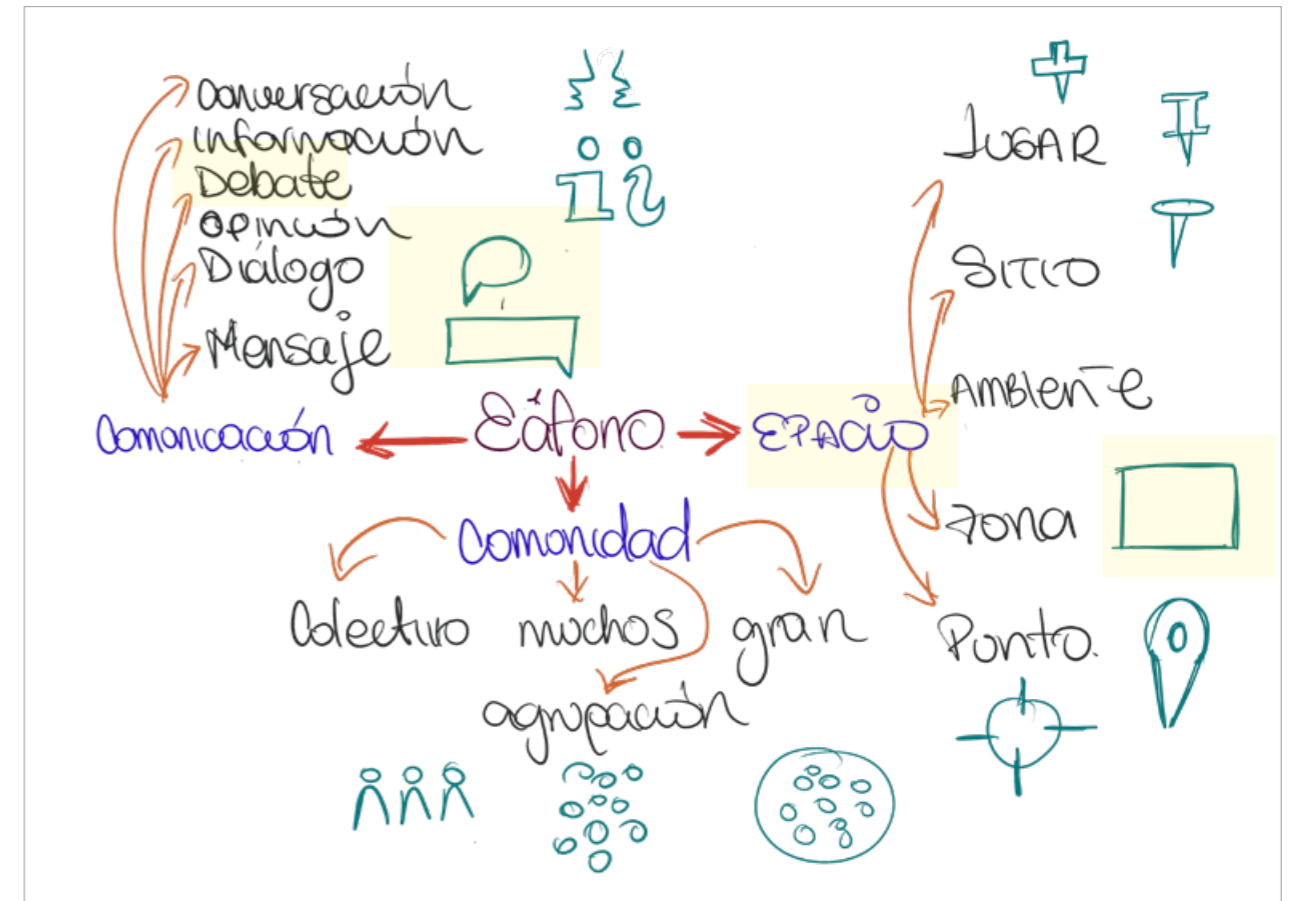 Conversación
información
Debate
opinión
Diálogo
Mensaje
Comonicación
EPACIO
Comonidad
Colectivo muchos gran
agrupación
LUGAR
SITIO
AMBIENTE
zona
Punto.